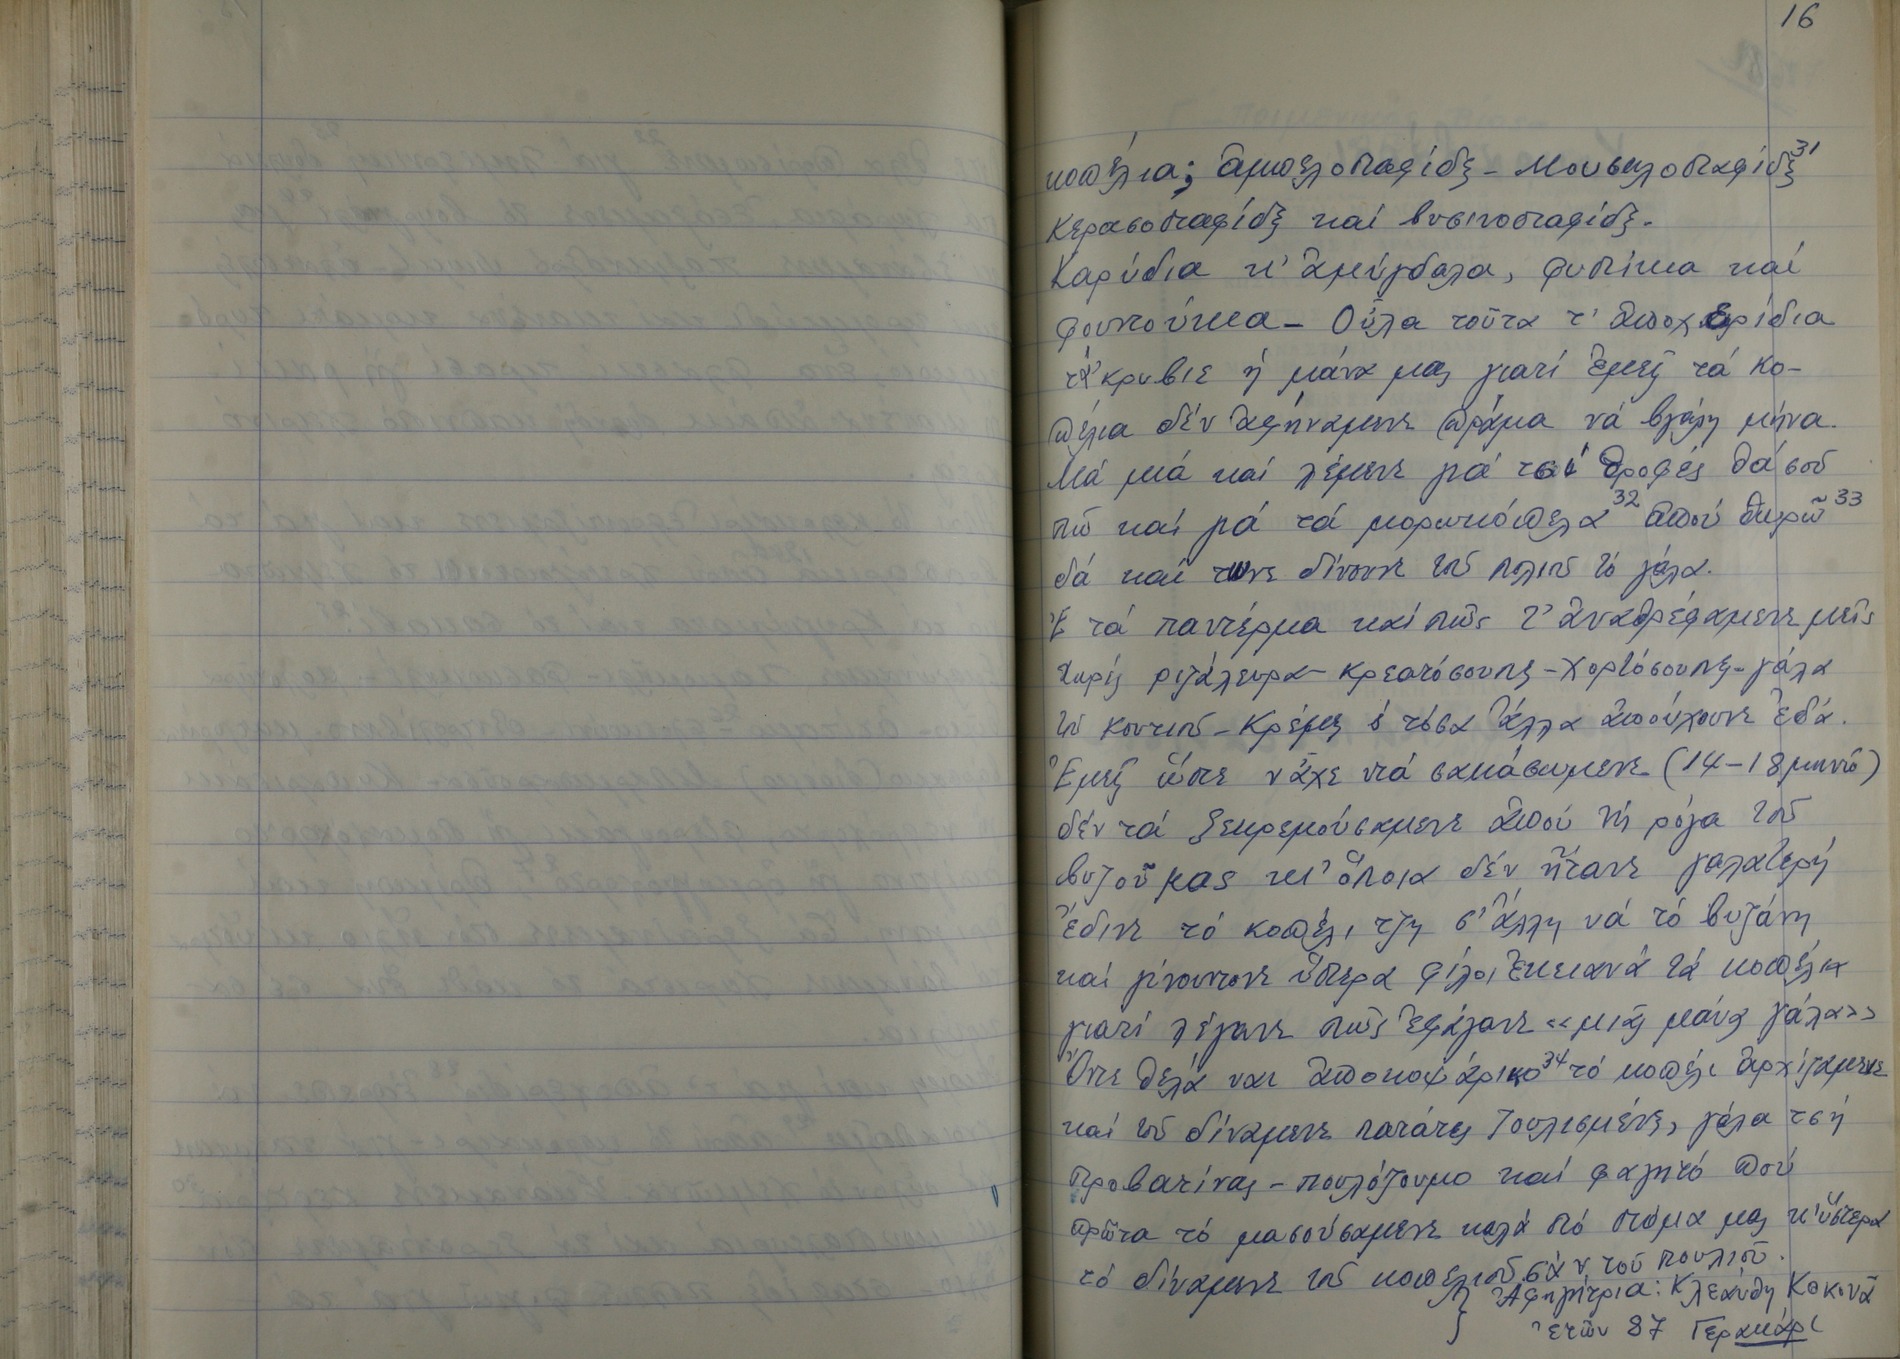 16
κοπέλια; ἀμπελοσταφίδες - Μουσκλοσταφίδες³¹
Κερασοσταφίδες καί βυσινοσταφίδες.
Καρύδια κ' ἀμύγδαλα, φυστίκια καί
φουντούκια - Οὗλα τοῦτα τ' ἀποχερίδια
τἄκρυβιε ἡ μάνα μας γιατί ἐμεῖς τά κο-
πέλια δέν ἀφήναμενε πρᾶμα νά βγάλη μήνα.
Μά μιά καί λέμενε γιά τσί τροφές θά σοῦ
πῶ καί γιά τά μορωκόπελα³² ἀπού θωρῶ³³
δά καί τωνε δίνουνε τοῦ πουλιοῦ τό γάλα.
Ἔ τά παντέρμα καί πῶς τ' ἀναθρέφαμενε μεῖς
χωρίς ριζάλευρα - κρεατόσουπες - χορτόσουπες - γάλα
τοῦ κουτιοῦ - Κρέμες ὁ τόσα ἄλλα ἀπούχουνε ἐδά.
Ἐμεῖς ὥστε νἄχε νά σακάσωμενε (14-18 μηνῶ)
δέν τά ξεκρεμούσαμενε ἀπού τή ρόγα τοῦ
βυζοῦ μας κι' ὅποια δέν ἤτανε γαλατερή
ἔδινε τό κοπέλι τζη σ' ἄλλη νά τό βυζάνη
καί γίνουντονε ὕστερα φίλοι ἐκειανά τά κοπέλια
γιατί λέγανε πῶς ἐφάγανε «μιᾶς μάνας γάλα»
Ὅντε θελά ναι ἀποκοψάρικο³⁴ τό κοπέλι ἀρχίζαμενε
καί τοῦ δίναμενε πατάτες τουλισμένες, γάλα τσή
προβατίνας - πουλόζουμο καί φαγητό πού
πρῶτα τό μασούσαμενε καλά στό στόμα μας κ' ὕστερα
τό δίναμενε τοῦ κοπελιοῦ σάν τοῦ πουλιοῦ.
Ἀφηγήτρια: Κλεάνθη Κοκονᾶ
ἐτῶν 87 Γερακάρι